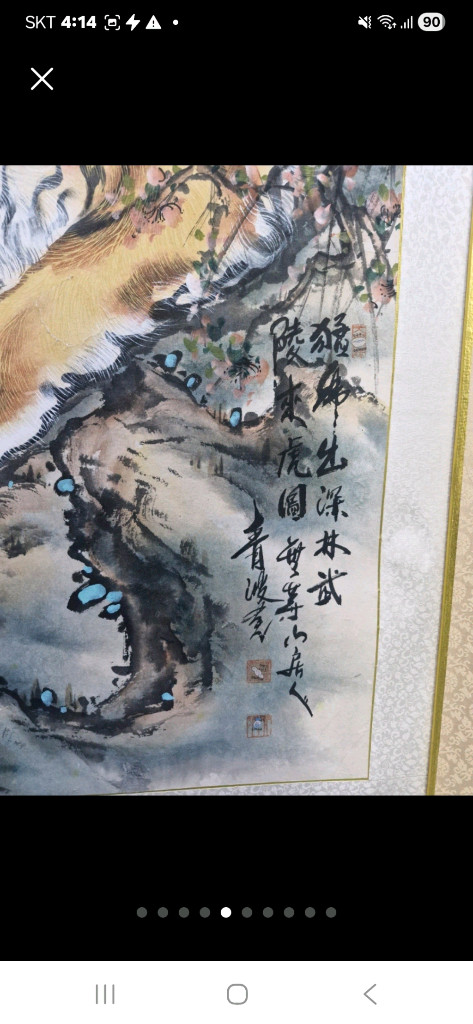 SKT 4:14
90
猛虎出深林武
陵來虎圖 無等山居人
青波